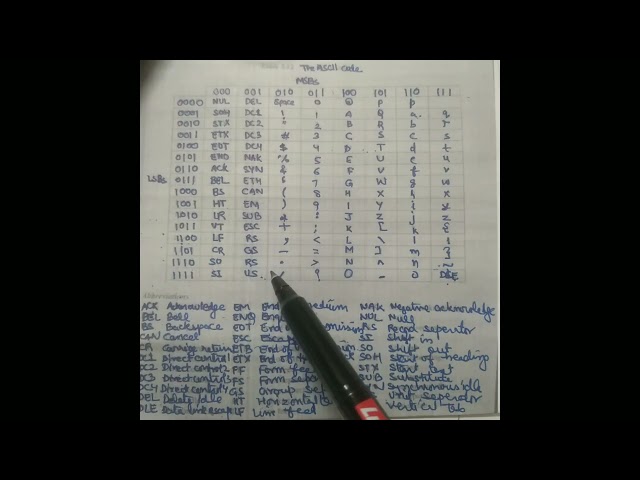 The ASCII Code
MSBs
000 001 010 011 100 101 110 111
0000 NUL DEL Space 0 @ P p
0001 SOH DC1 ! 1 A Q a q
0010 STX DC2 " 2 B R b r
0011 ETX DC3 # 3 C S c s
0100 EOT DC4 $ 4 D T d t
0101 ENQ NAK % 5 E U e u
0110 ACK SYN & 6 F V f v
LSBs 0111 BEL ETH 7 G W g w
1000 BS CAN ( 8 H X h x
1001 HT EM ) 9 I Y i y
1010 LR SUB * : J Z j z
1011 VT ESC + ; K [ k {
1100 LF RS , < L \ l |
1101 CR GS - = M ] m }
1110 SO RS . > N ^ n ~
1111 SI US / ? O _ o DLE
ACK Acknowledge EM End medium NAK Negative acknowledge
BEL Bell ENQ NUL Null
BS Backspace EOT End of RS Record seperator
CAN Cancel ESC SI Shift in
CR Carriage return ETB End of SO Shift out
DC1 Direct control ETX End of SOH Start of heading
DC2 Direct control 2 FF Form feed STX Start text
DC3 Direct control 3 FS Form SUB Substitute
DC4 Direct control 4 GS Group Synchronous idle
DEL Delete idle HT Horizontal Unit seperator
DLE Data link escape LF Line feed Vertical tab